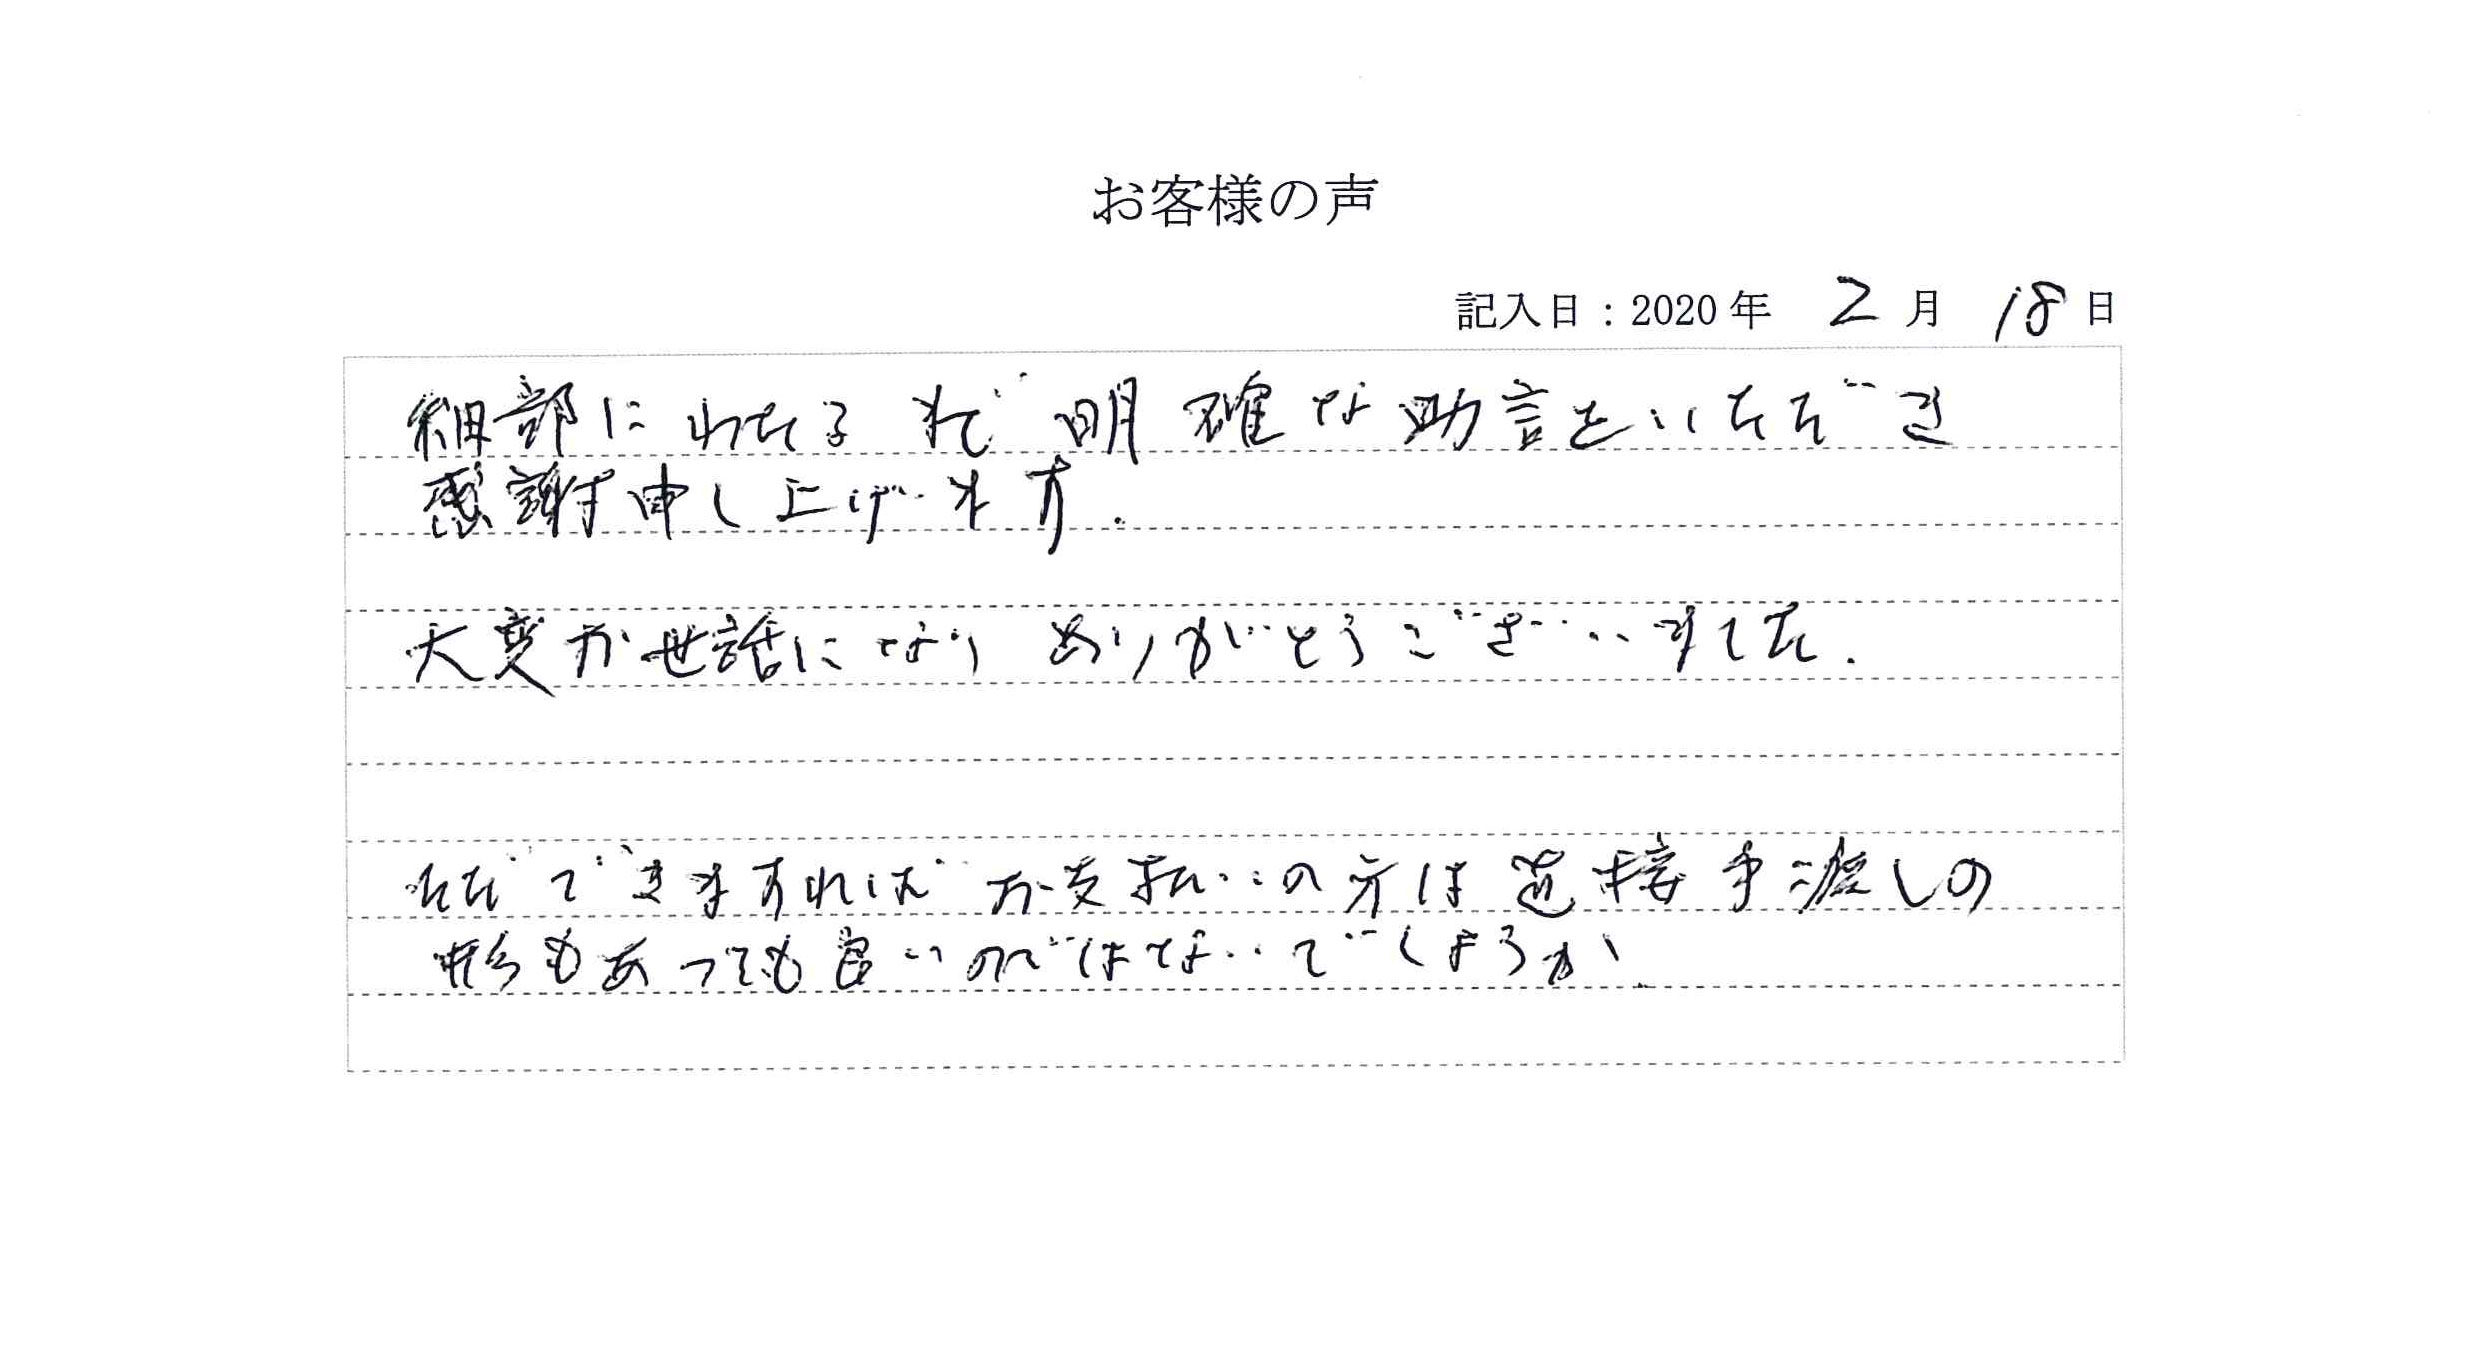 お客様の声
記入日：2020年 2月 18日
細部にわたるまで明確な助言をいただき
感謝申し上げます.
大変お世話になりありがとうございました.
ただできますればお支払いの方は直接手渡しの
形もあっても良いのではないでしょうか